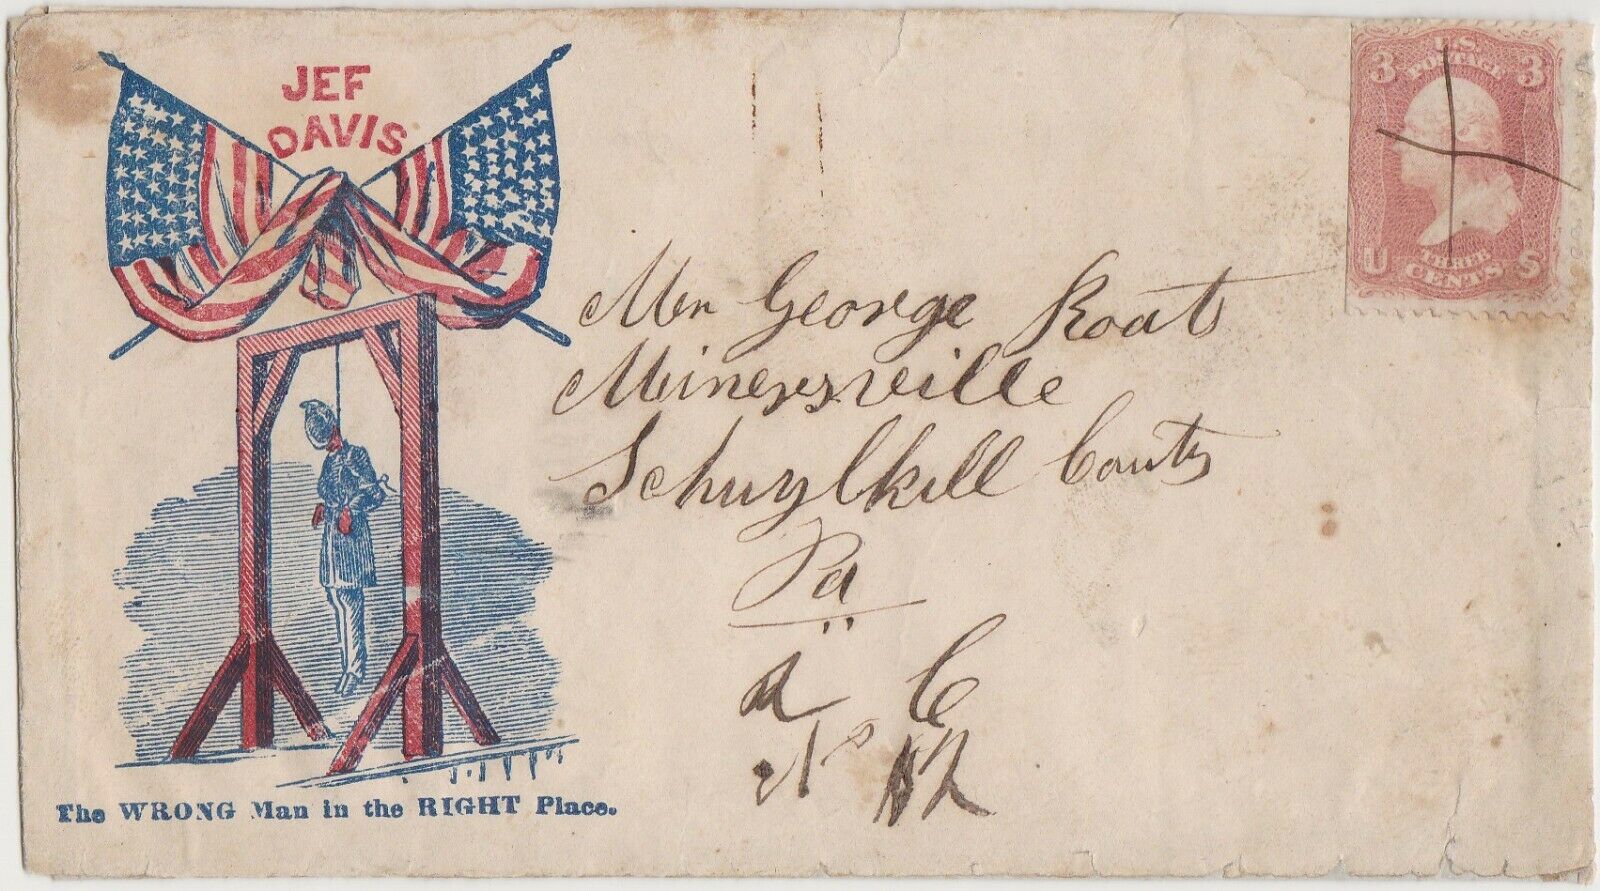 JEF
DAVIS
The WRONG Man in the RIGHT Place.
3 U.S. 3
POSTAGE
U THREE S
CENTS
Mr George Koats
Minersville
Schuylkill County
Pa
a C
No